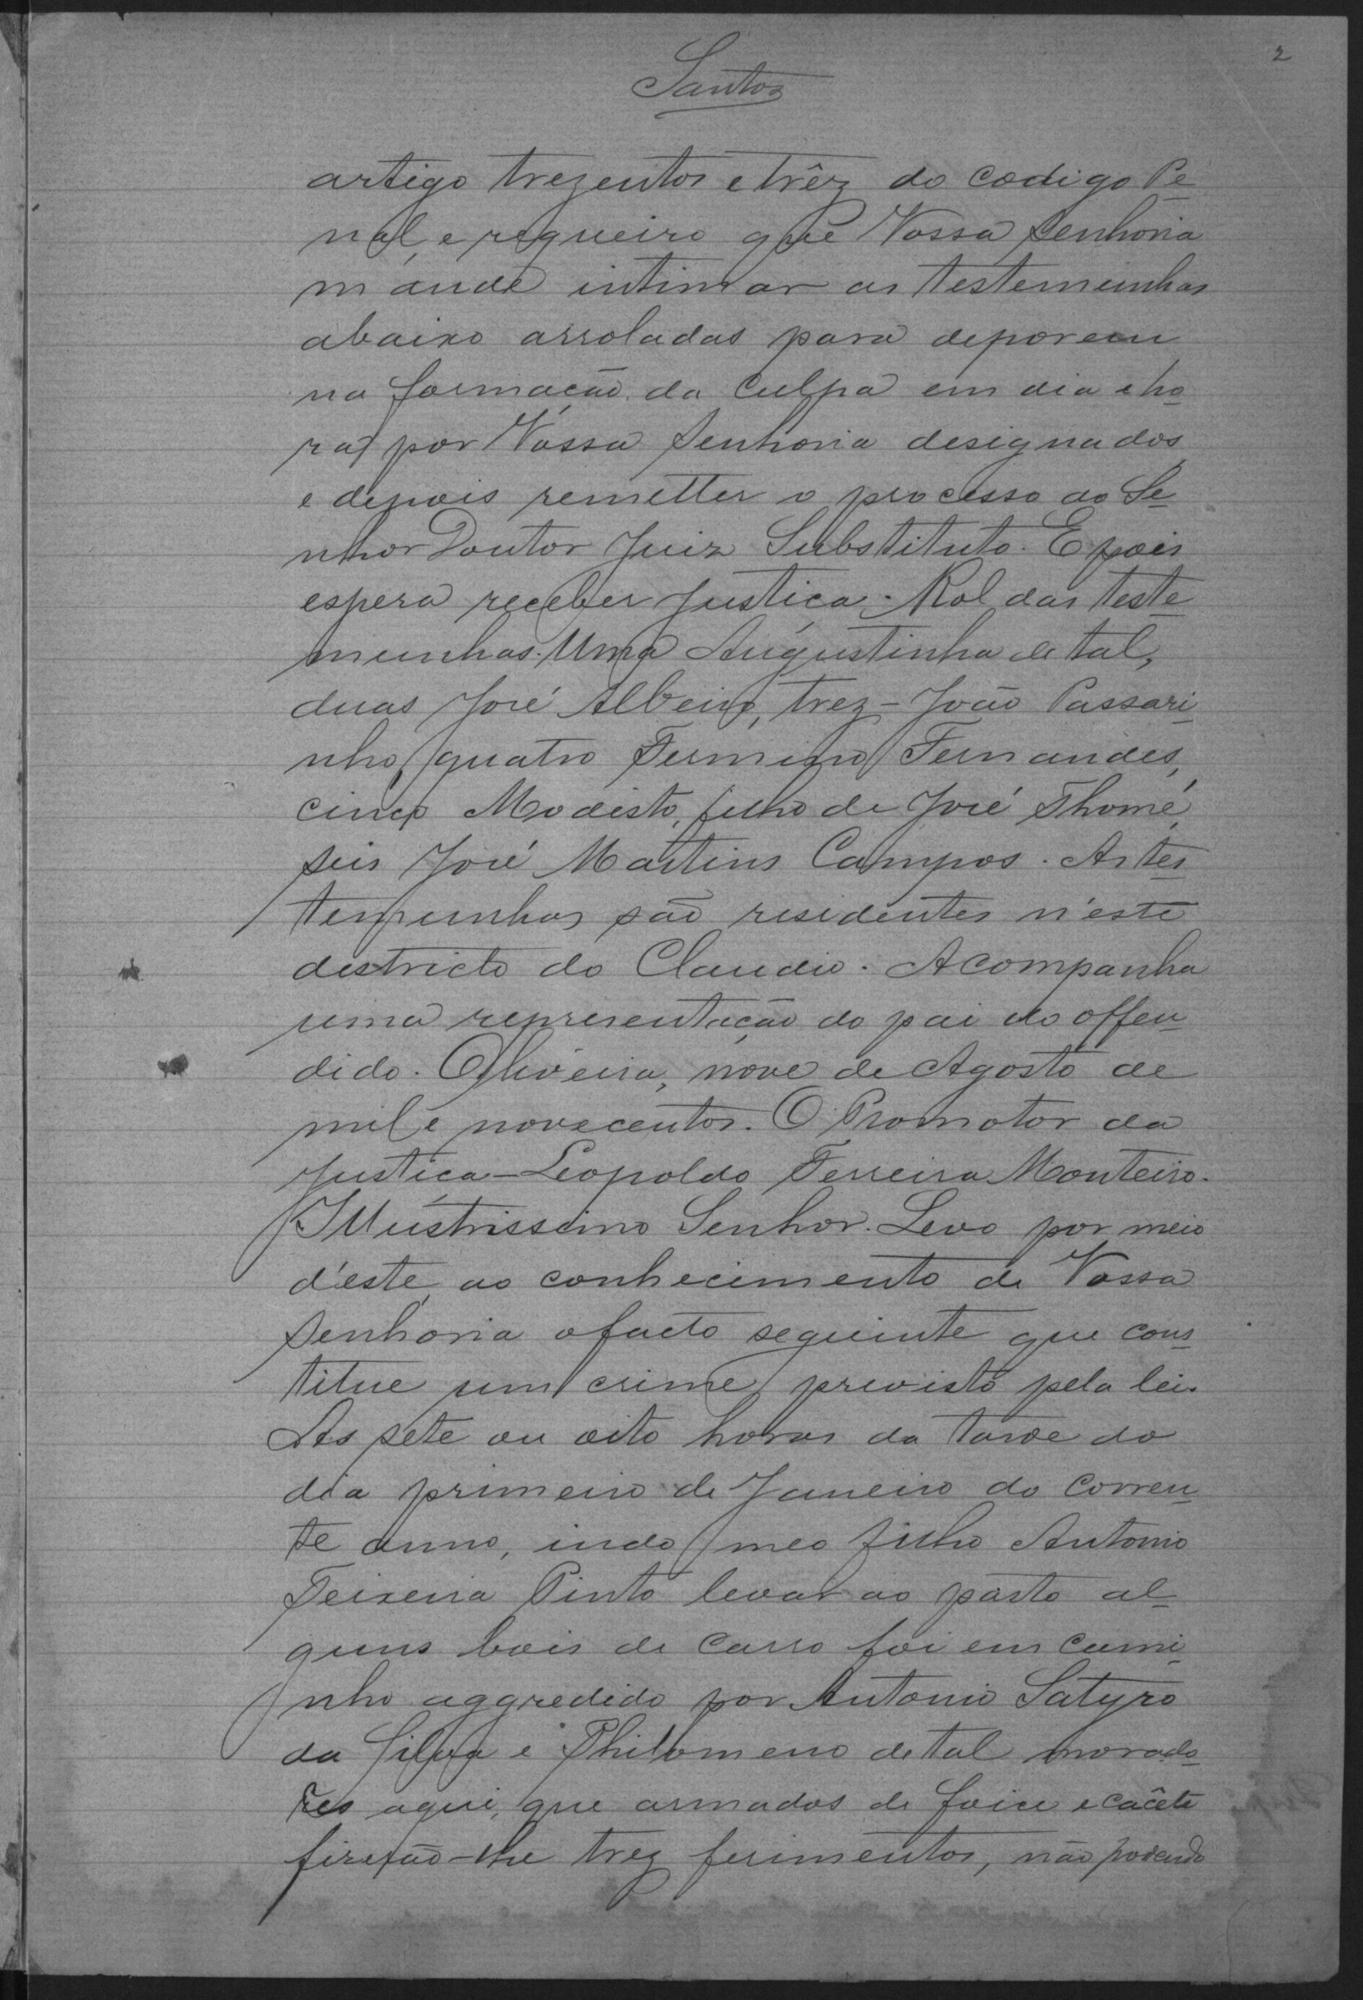 2
Santos
artigo trezentos e trêz do codigo Pe-
nal, e requeiro que Vossa Senhoria
mande intimar as testemunhas
abaixo arroladas para deporem
na formação da culpa em dia e ho-
ra por Vossa Senhoria designados
e depois remetter o processo ao Se-
nhor Doutor Juiz Substituto. E pois
espera receber justiça. Rol das teste
munhas. Uma Augustinha de tal,
duas José Albeiro, trez - João Passari-
nho, quatro Firmino Fernandes,
cinco Modésto, filho de José Thomé,
seis José Martins Campos. As tes-
temunhas são residentes n'este
districto do Claudio. Acompanha
uma representação do pai do offen-
dido. Oliveira, nove de Agosto de
mil e novecentos. O Promotor da
Justiça - Leopoldo Ferreira Monteiro.
Illustrissimo Senhor. Levo por meio
d'este, ao conhecimento de Vossa
Senhoria o facto seguinte que cons-
titue um crime previsto pela lei.
As sete ou oito horas da tarde do
dia primeiro de Janeiro do corren-
te anno, indo meo filho Antonio
Teixeira Pinto levar ao pasto al-
guns bois de carro foi em cami-
nho aggredido por Antonio Satyro
da Silva e Philomeno de tal morado-
res aqui, que armados de foice e cacête
firirão-lhe trez ferimentos, não podendo